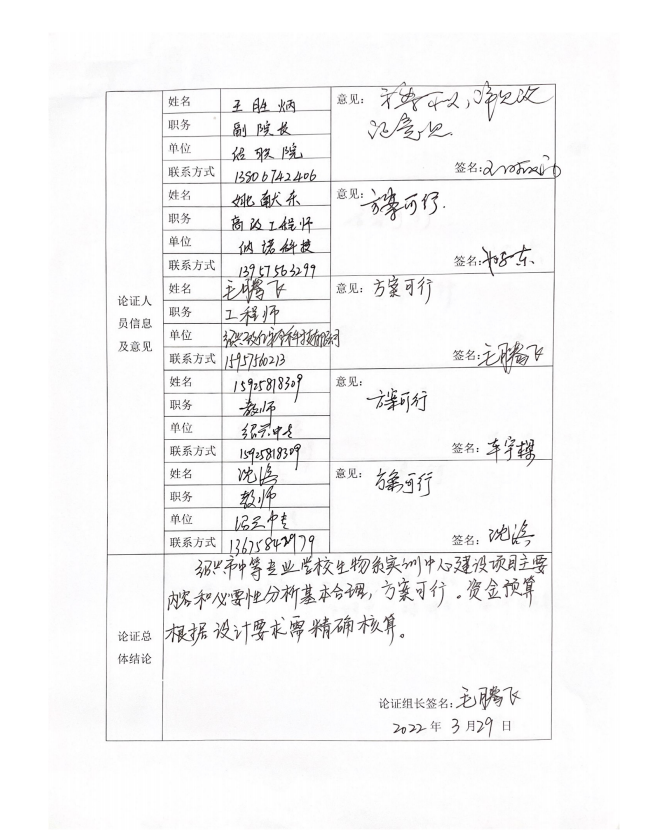 姓名 王胜炳 意见:
职务 副院长
单位 绍职院
联系方式 13806742406 签名:
姓名 姚献东 意见: 方案可行.
职务 高级工程师
单位 纳诺科技
联系方式 13957563299 签名:
论证人员信息及意见
姓名 毛腾飞 意见: 方案可行
职务 工程师
单位
联系方式 15957560213 签名: 毛腾飞
姓名 15925818309 意见: 方案可行
职务 教师
单位 绍兴中专
联系方式 15925818309 签名:
姓名 沈滨 意见: 方案可行
职务 教师
单位 绍兴中专
联系方式 签名: 沈滨
论证总体结论
绍兴市中等专业学校生物系实训中心建设项目主要
内容和必要性分析基本合理,方案可行。资金预算
根据设计要求需精确核算。
论证组长签名: 毛腾飞
2022 年 3 月 29 日